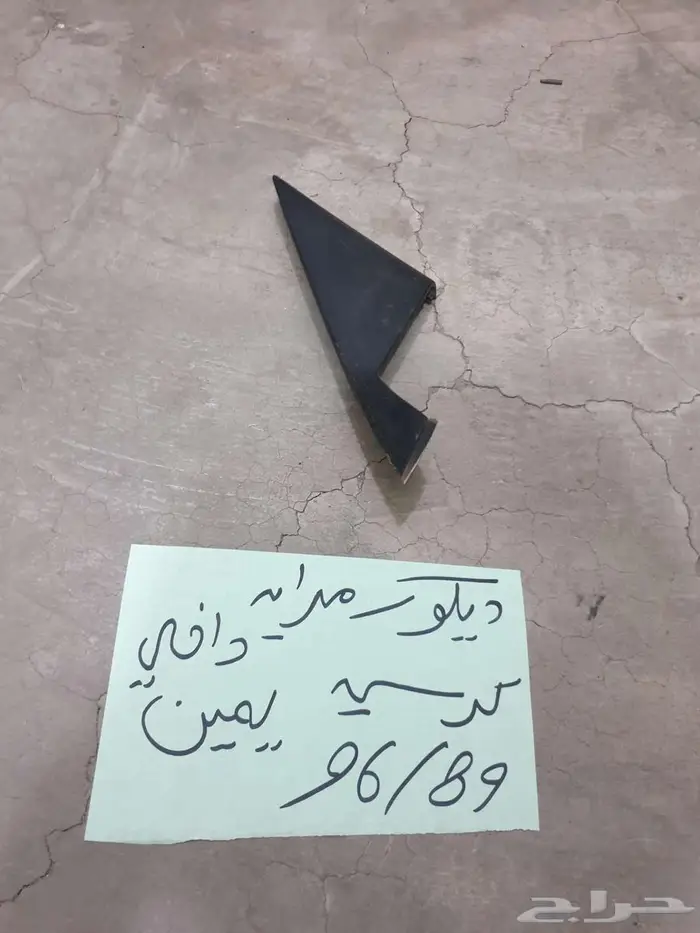 ديكور مرايه داخلي
كرسيه يمين
96/89
حراج